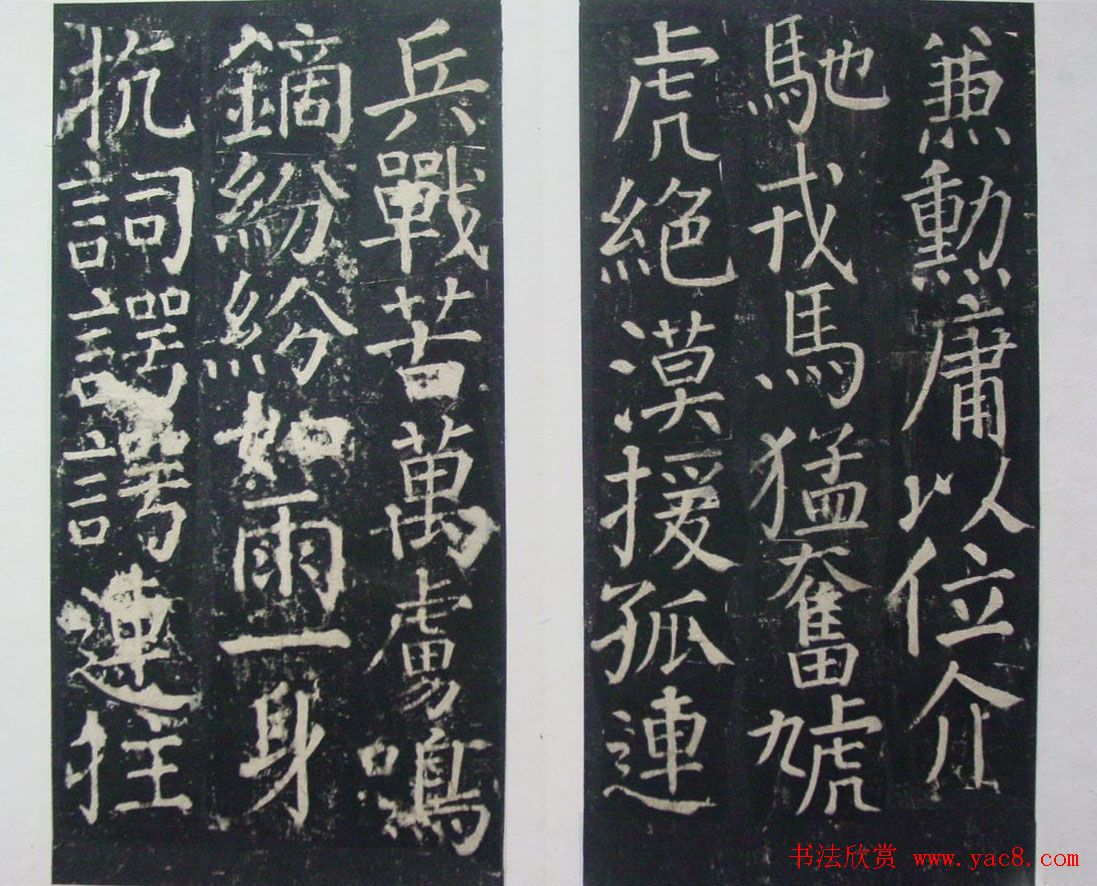 兼勳庸以位介
馳戎馬猛奮虓
虎絕漠援孤連
兵戰苦萬虜鳴
鏑紛紛如雨一身
抗詞諤諤連拄
书法欣赏 www.yac8.com